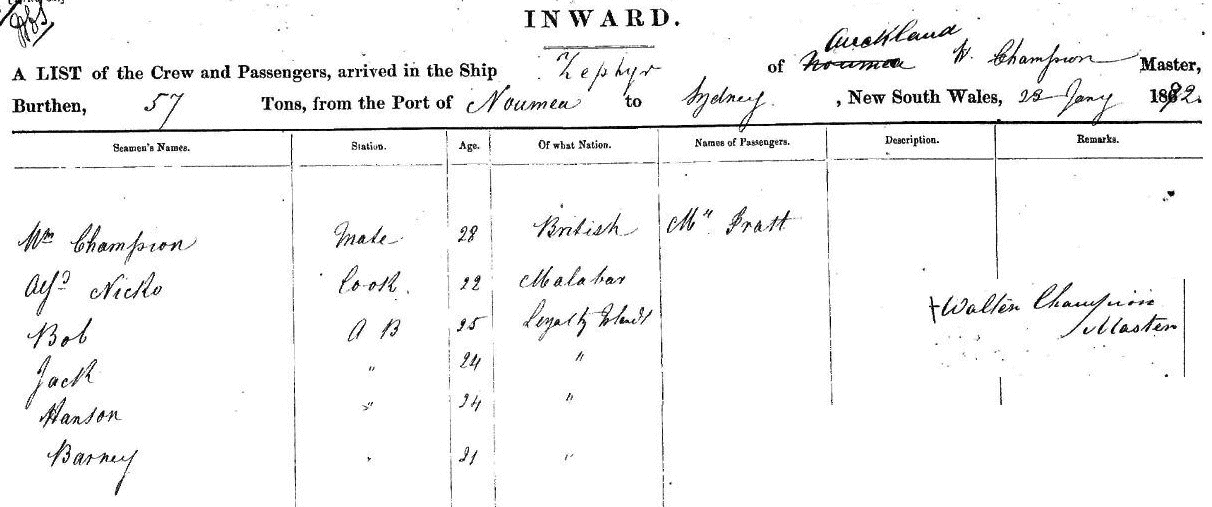 INWARD.
A LIST of the Crew and Passengers, arrived in the Ship Zephyr of Noumea Auckland W. Champion Master,
Burthen, 57 Tons, from the Port of Noumea to Sydney, New South Wales, 23 Jany 1882.
Seamen's Names. Station. Age. Of what Nation. Names of Passengers. Description. Remarks.
Wm Champion Mate 28 British Mr. Pratt
Alfd Nicko Cook. 22 Malabar
Bob A B 25 Loyalty Islands
Jack " 24 "
Hanson " 24 "
Barney " 21 "
Walter Champion
Master